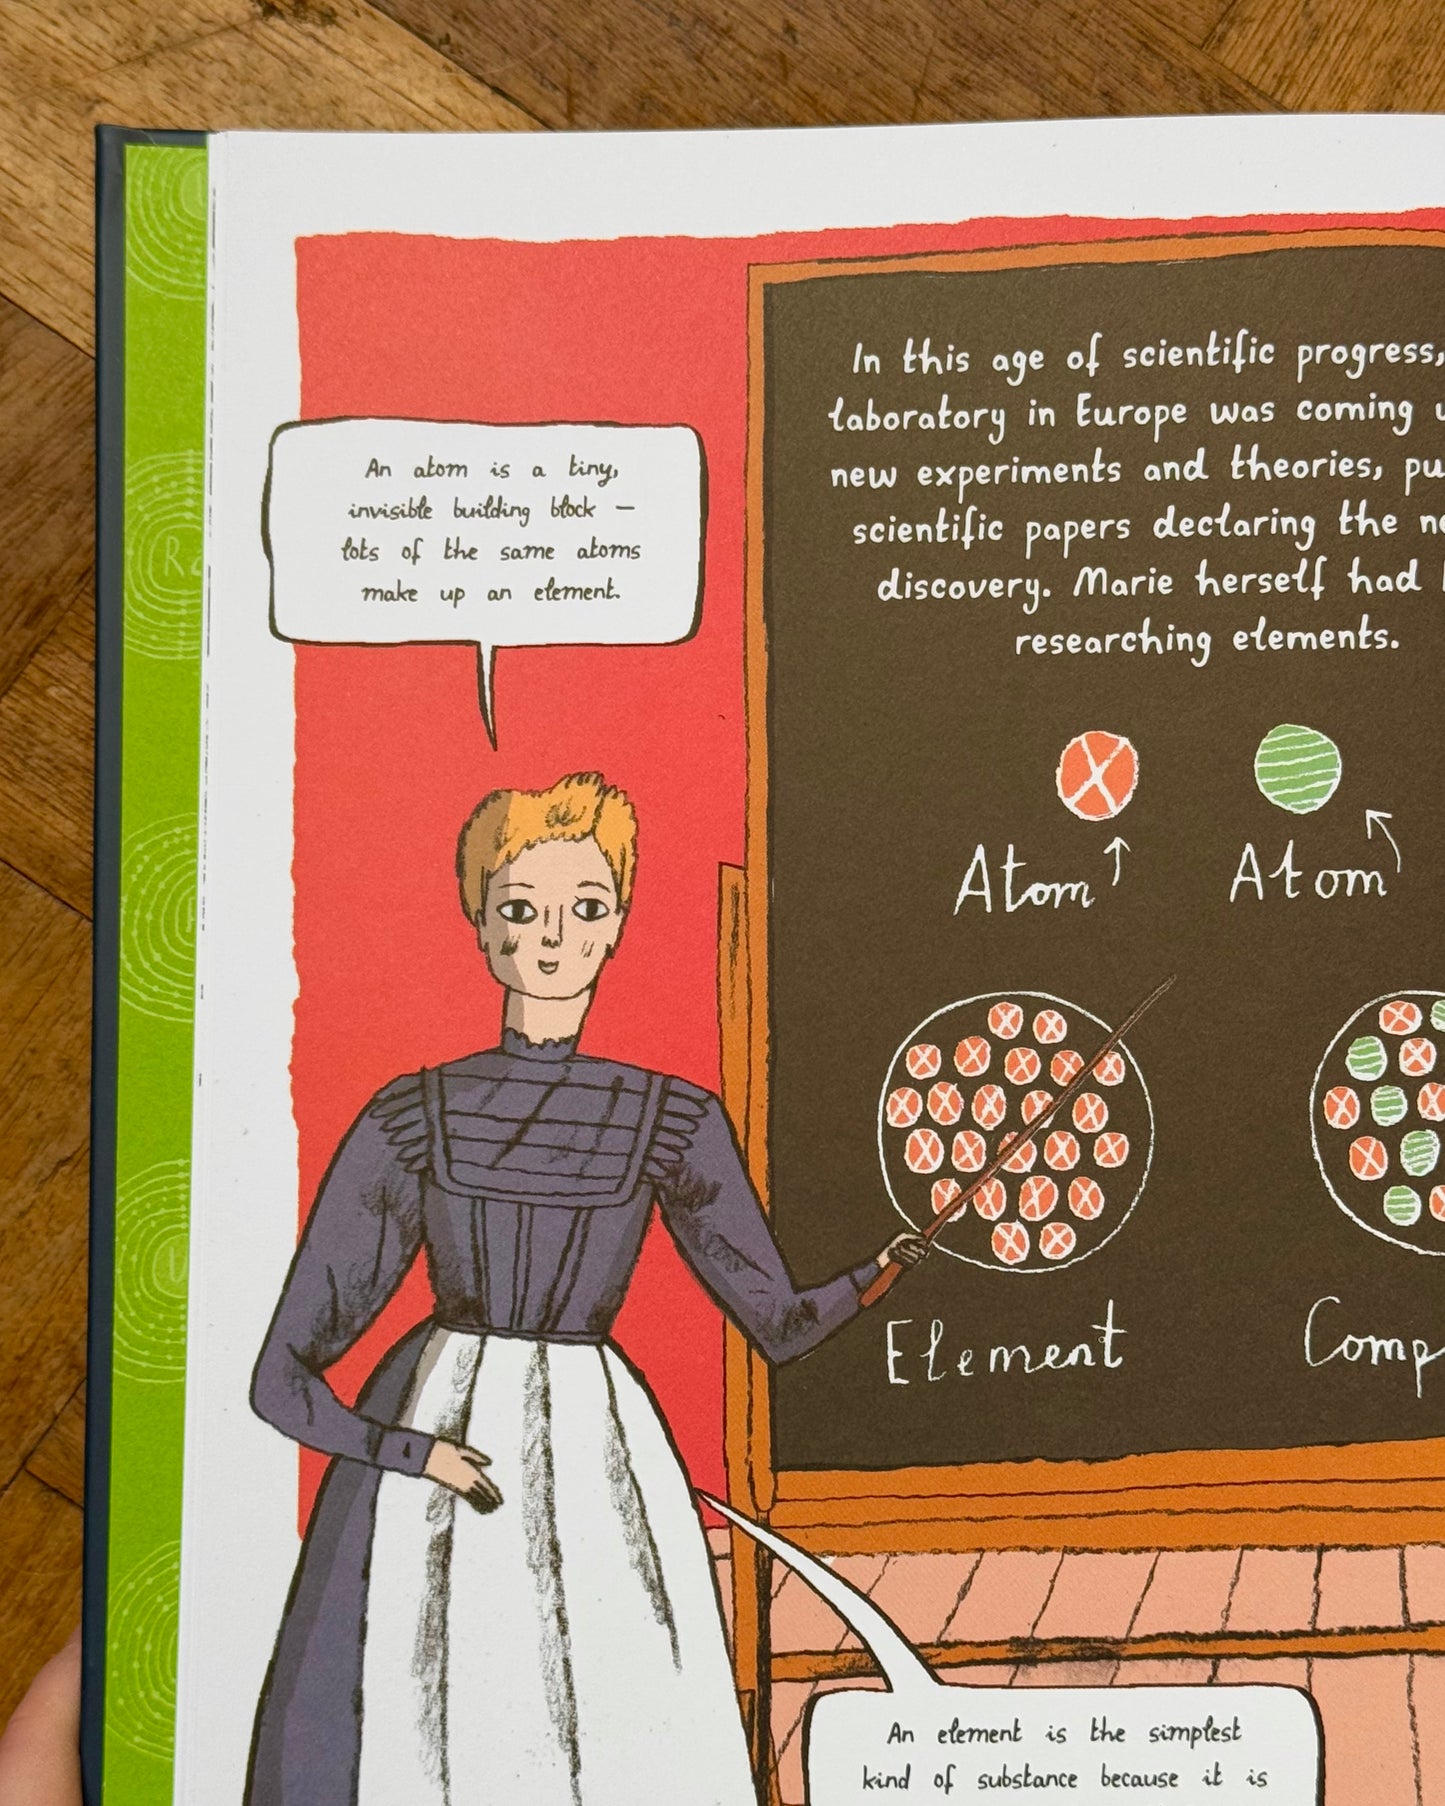 An atom is a tiny,
invisible building block —
lots of the same atoms
make up an element.
In this age of scientific progress,
laboratory in Europe was coming
new experiments and theories,
scientific papers declaring the
discovery. Marie herself had
researching elements.
Atom
Atom
Element
An element is the simplest
kind of substance because it is